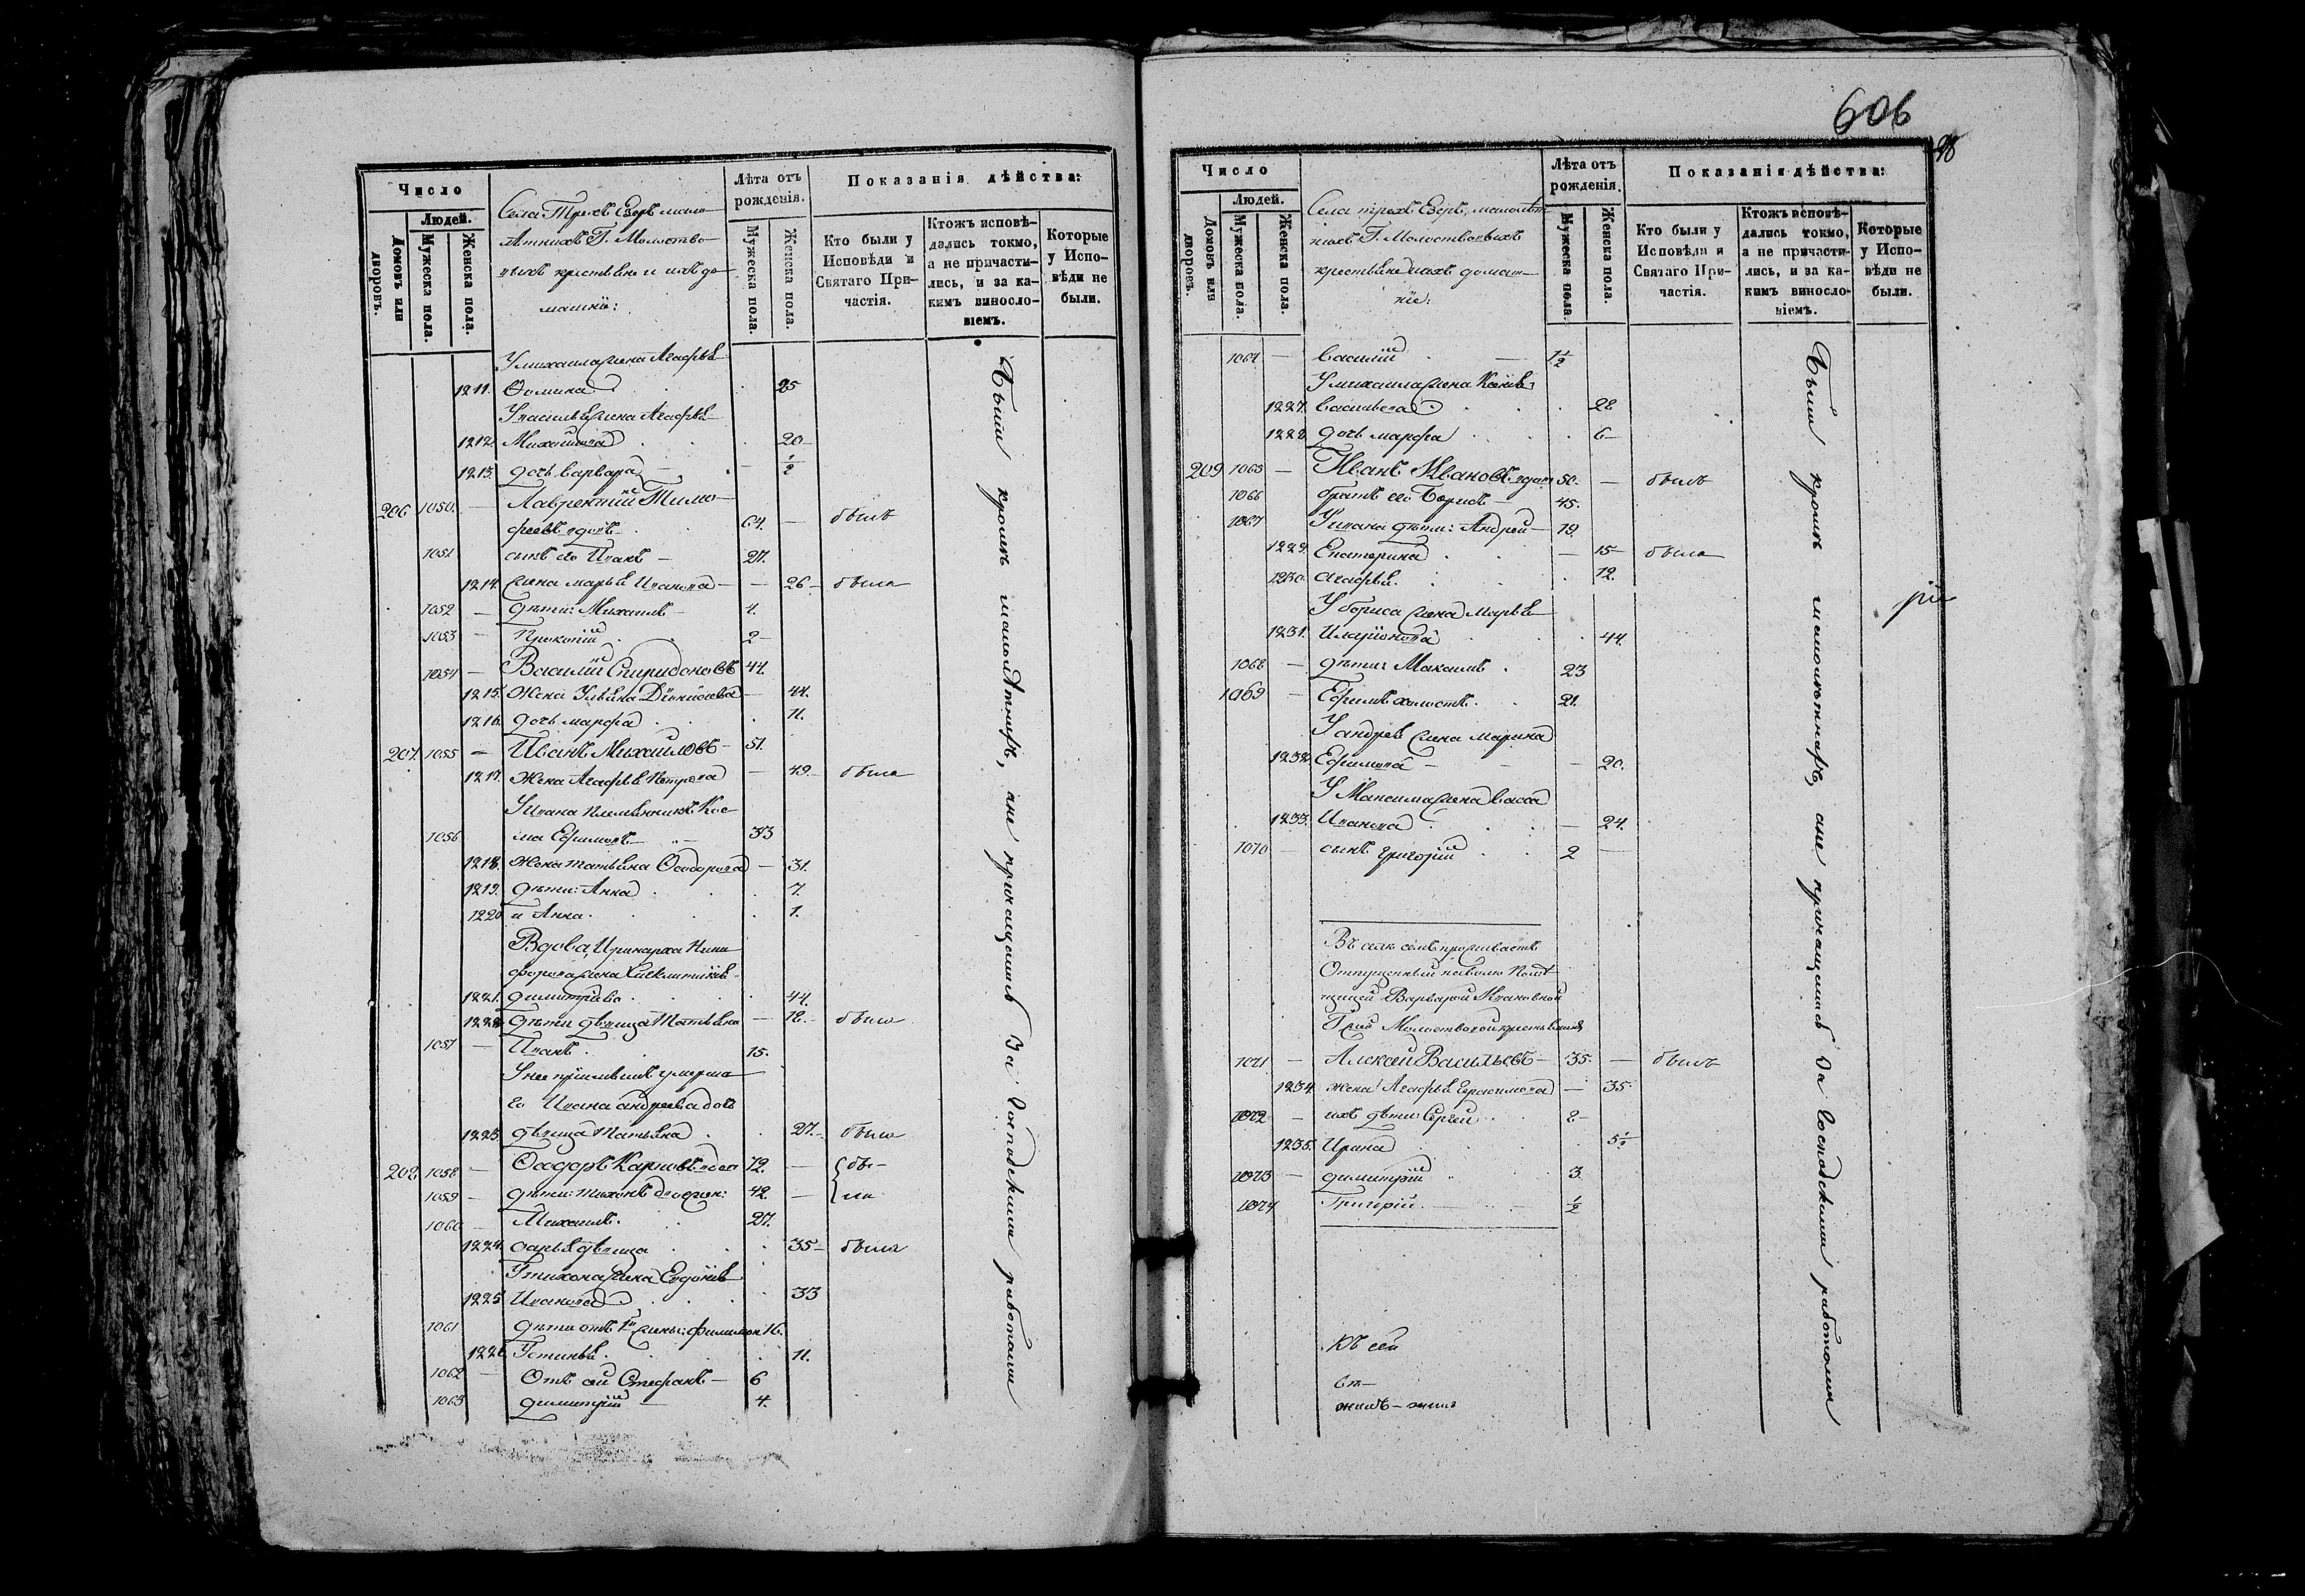 Число
Людей.
Домовъ или дворовъ.
Мужеска пола.
Женска пола.
Села Трехъ Езеръ мало-
лѣтнихъ Г. Молоство-
выхъ крестьяне и ихъ до-
машніи:
Лѣта отъ рожденія.
Мужеска пола.
Женска пола.
Показанія дѣйства:
Кто были у Исповѣди и Святаго Причастія.
Ктожъ исповѣ-
дались токмо,
а не причасти-
лись, и за ка-
кимъ виносло-
віемъ.
Которые
у Испо-
вѣди не
были.
У михаила жена Агафья
1211. Фомина 25
У василья жена Агафья
1212. Михайлова 20
1213. дочь варвара 1/2
206 1050. Лаврентій Тимо-
феевъ вдовъ 64. былъ
1051 сынъ его Иванъ 27.
1214. жена марья Иванова 26 была
1052 дѣти: Михаилъ 4.
1053 Прокопій 2
1054 Василій Спиридоновъ 44.
1215. Жена Ульяна Діонисіева 44.
1216. дочь марфа 11.
207. 1055 Иванъ Михайловъ 51.
1217. жена Агафья Петрова 49 была
У Ивана племянникъ Кос-
1056 ма Ефимовъ 33
1218. жена татьяна Ѳеодорова 31.
1219. дѣти: Анна 7.
1220 и Анна 1.
Вдова, Иринарха Ники-
форова жена
1221. димитріева 44.
1222 дѣти дѣвица Татьяна 18. была
1057 Иванъ 15.
У нее умерша-
го Ивана андреева дочь
1223. дѣвица Татьяна 27. была
208 1058 Ѳеодоръ Карповъ вдов 72. бы-
1059 дѣти: тихонъ 42. ли
1060 Михаилъ 27.
1224. дѣвица 35 была
У тихона жена Евдокія
1225 Иванова 33
1061 дѣти отъ 1й жены: филимон 16.
1226 Устинья 11.
1062 Отъ сей Стефанъ 6
1063 димитрій 4.
Были кромѣ малолѣтнихъ, а не причащались За Господскими работами
606
98
Число
Людей.
Домовъ или дворовъ.
Мужеска пола.
Женска пола.
Села трехъ Езеръ, малолѣт-
нихъ Г. Молоствовыхъ
крестьяне и ихъ домаш-
ніе:
Лѣта отъ рожденія.
Мужеска пола.
Женска пола.
Показанія дѣйства:
Кто были у Исповѣди и Святаго Причастія.
Ктожъ исповѣ-
дались токмо,
а не причасти-
лись, и за ка-
кимъ виносло-
віемъ.
Которые
у Испо-
вѣди не
были.
1064 Василій 1 1/2
У михаила жена Ксенія
1227. васильева 28
1228 дочь марфа 6
209 1065 Иванъ Ивановъ вдовъ 50. былъ
1066 братъ его Борисъ 45.
1067 У ивана дѣти: Андрей 19.
1229. Екатерина 15 была
1230. агафья 12.
У бориса жена Марья
1231. Иларіонова 44.
1068 дѣти: Максимъ 23
1069 Ефимъ холостъ 21.
У андрея жена марина
1232 Ефимова 20.
У Максима жена васса
1233. Иванова 24.
1070 сынъ григорій 2
Въ семъ селѣ проживаетъ
Отпущенный на волю Помѣ-
щицей Варварой Ивановной
Г-жей Молоствовой крестьянинъ
1071 Алексей Васильевъ 35. былъ
1234. жена Агафья Герасимова 35.
1072 ихъ дѣти: Сергей 8
1235. Ирина 5 1/2
1073 димитрій 3
1074 Григорій 1/2
Были кромѣ малолѣтнихъ, а не причащались За Господскими работами